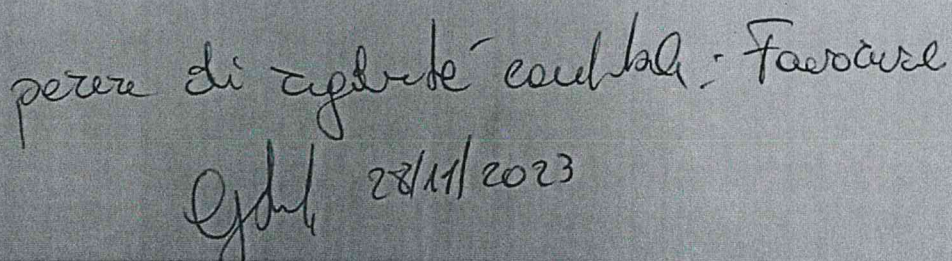 parere di regolarità contabile: Favorevole
28/11/2023